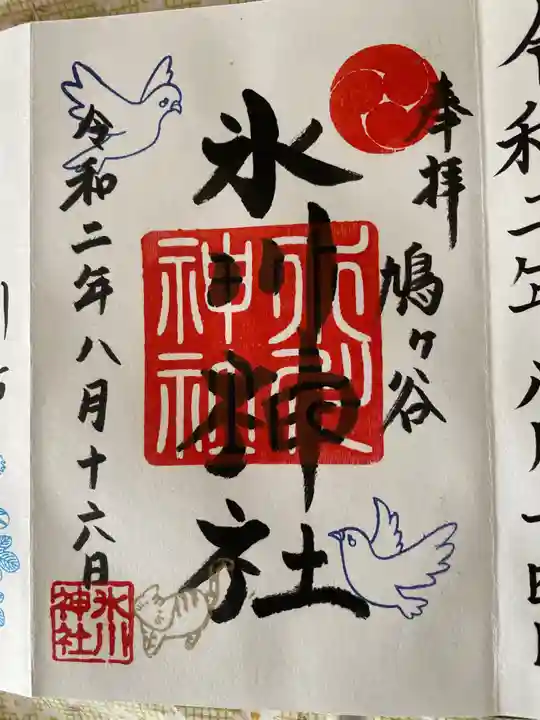 奉拝
鳩ヶ谷
氷川神社
氷川
神社
令和二年八月十六日
氷川
神社
令和二年八月十